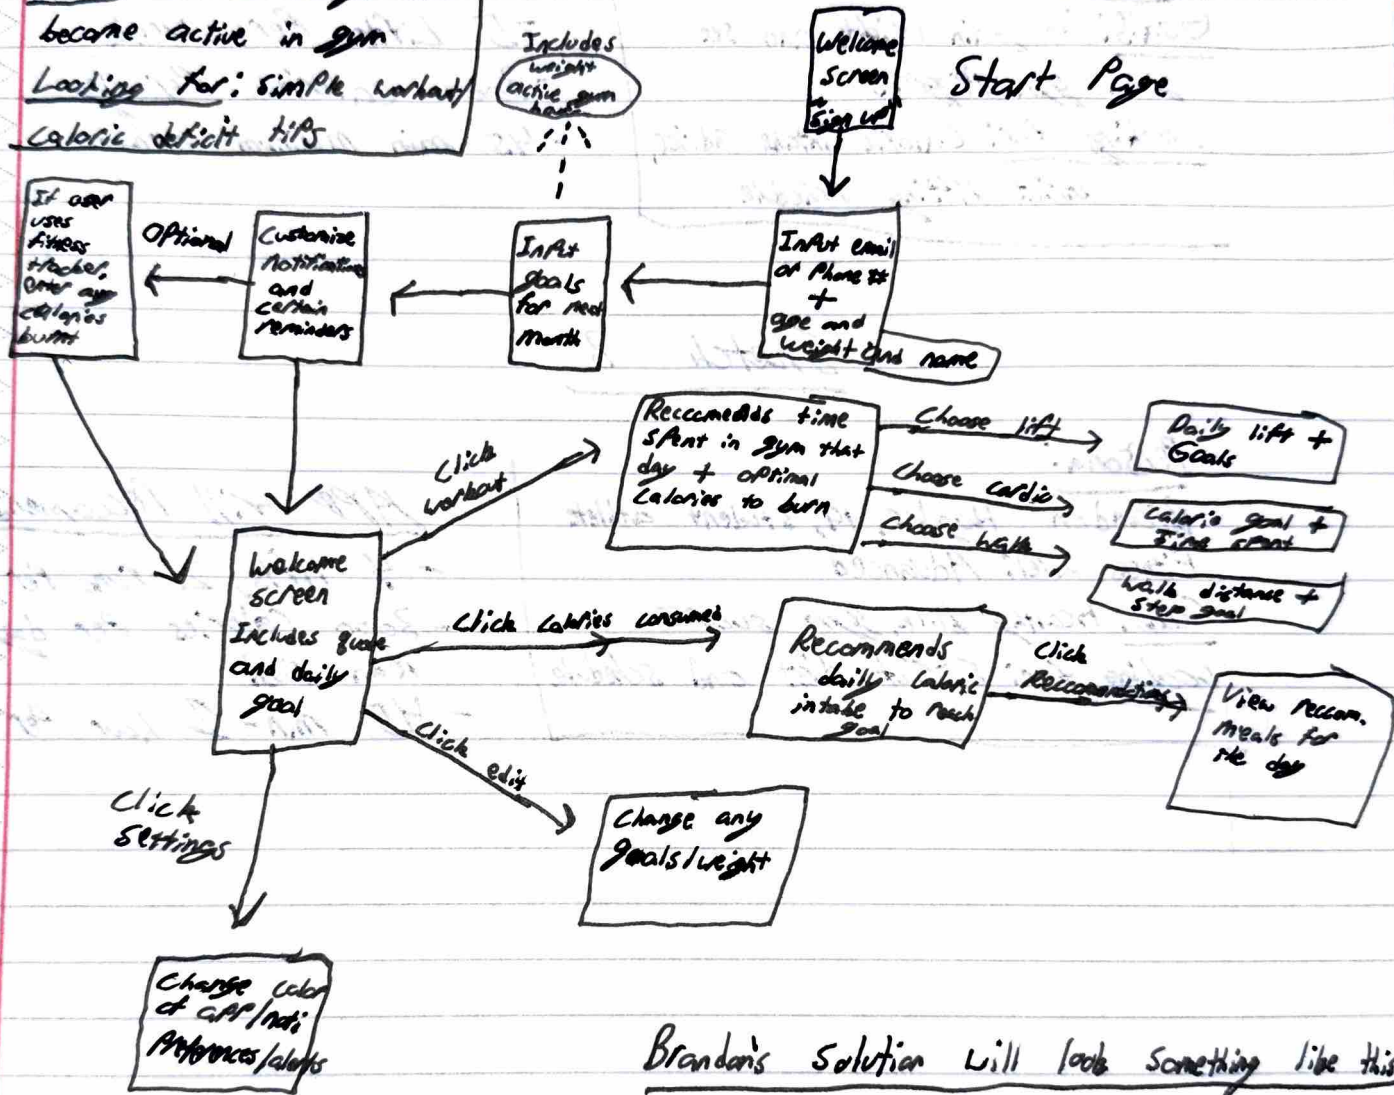 become active in gym
Looking for: simple workout/
caloric deficit tips
Includes
weight
active gym
hours
Welcome
screen
"Sign up"
Start Page
If user
uses
fitness
tracker,
enter avg
calories
burnt
Optional
Customize
notifications
and
certain
reminders
Input
goals
for next
month
Input email
or Phone #
+
age and
weight and name
Reccomends time
spent in gym that
day + optimal
calories to burn
Choose lift
Daily lift +
Goals
Choose cardio
calorie goal +
Time spent
Choose walk
walk distance +
step goal
Click
workout
Welcome
screen
Includes quote
and daily
goal
Click Calories consumed
Recommends
daily caloric
intake to reach
goal
Click
Reccomendations
View reccom.
meals for
the day
Click
edit
Change any
goals/weight
Click
settings
Change color
of app/noti
Preferences/alerts
Brandon's solution will look something like this